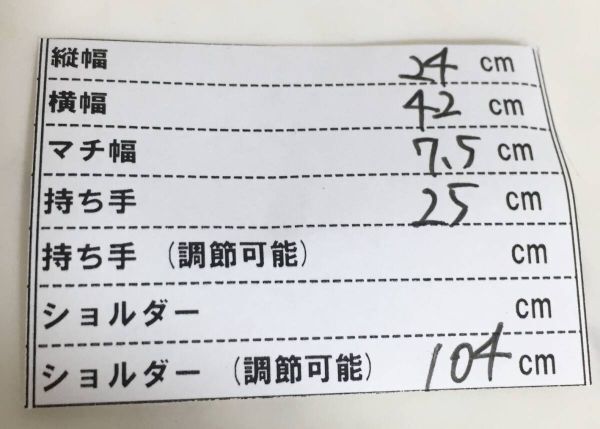 縦幅 24 cm
横幅 42 cm
マチ幅 7.5 cm
持ち手 25 cm
持ち手 (調節可能) cm
ショルダー cm
ショルダー (調節可能) 104 cm